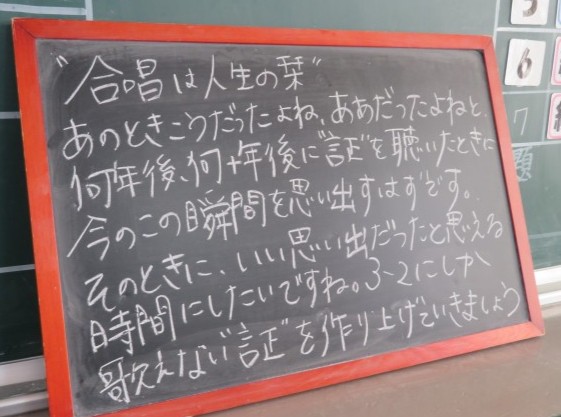 "合唱は人生の栞"
あのときこうだったよね、ああだったよねと、
何年後、何十年後に"証"を聴いたときに
今のこの瞬間を思い出すはずです。
そのときに、いい思い出だったと思える
時間にしたいですね。3-2にしか
歌えない"証"を作り上げていきましょう
5
6
7